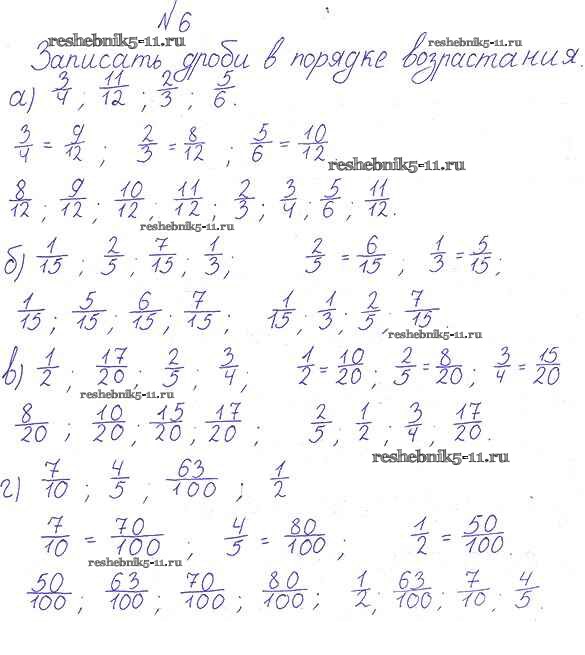 №6
reshebnik5-11.ru reshebnik5-11.ru
Записать дроби в порядке возрастания.
а) 3/4 ; 11/12 ; 2/3 ; 5/6.
3/4 = 9/12 ; 2/3 = 8/12 ; 5/6 = 10/12
reshebnik5-11.ru
8/12 ; 9/12 ; 10/12 ; 11/12 ; 2/3 ; 3/4 ; 5/6 ; 11/12.
reshebnik5-11.ru
б) 1/15 ; 2/5 ; 7/15 ; 1/3 ; 2/5 = 6/15 ; 1/3 = 5/15 ;
1/15 ; 5/15 ; 6/15 ; 7/15 ; 1/15 ; 1/3 ; 2/5 ; 7/15.
reshebnik5-11.ru
в) 1/2 ; 17/20 ; 2/5 ; 3/4 ; 1/2 = 10/20 ; 2/5 = 8/20 ; 3/4 = 15/20
reshebnik5-11.ru
8/20 ; 10/20 ; 15/20 ; 17/20 ; 2/5 ; 1/2 ; 3/4 ; 17/20.
reshebnik5-11.ru
г) 7/10 ; 4/5 ; 63/100 ; 1/2
7/10 = 70/100 ; 4/5 = 80/100 ; 1/2 = 50/100.
reshebnik5-11.ru
50/100 ; 63/100 ; 70/100 ; 80/100 ; 1/2 ; 63/100 ; 7/10 ; 4/5.